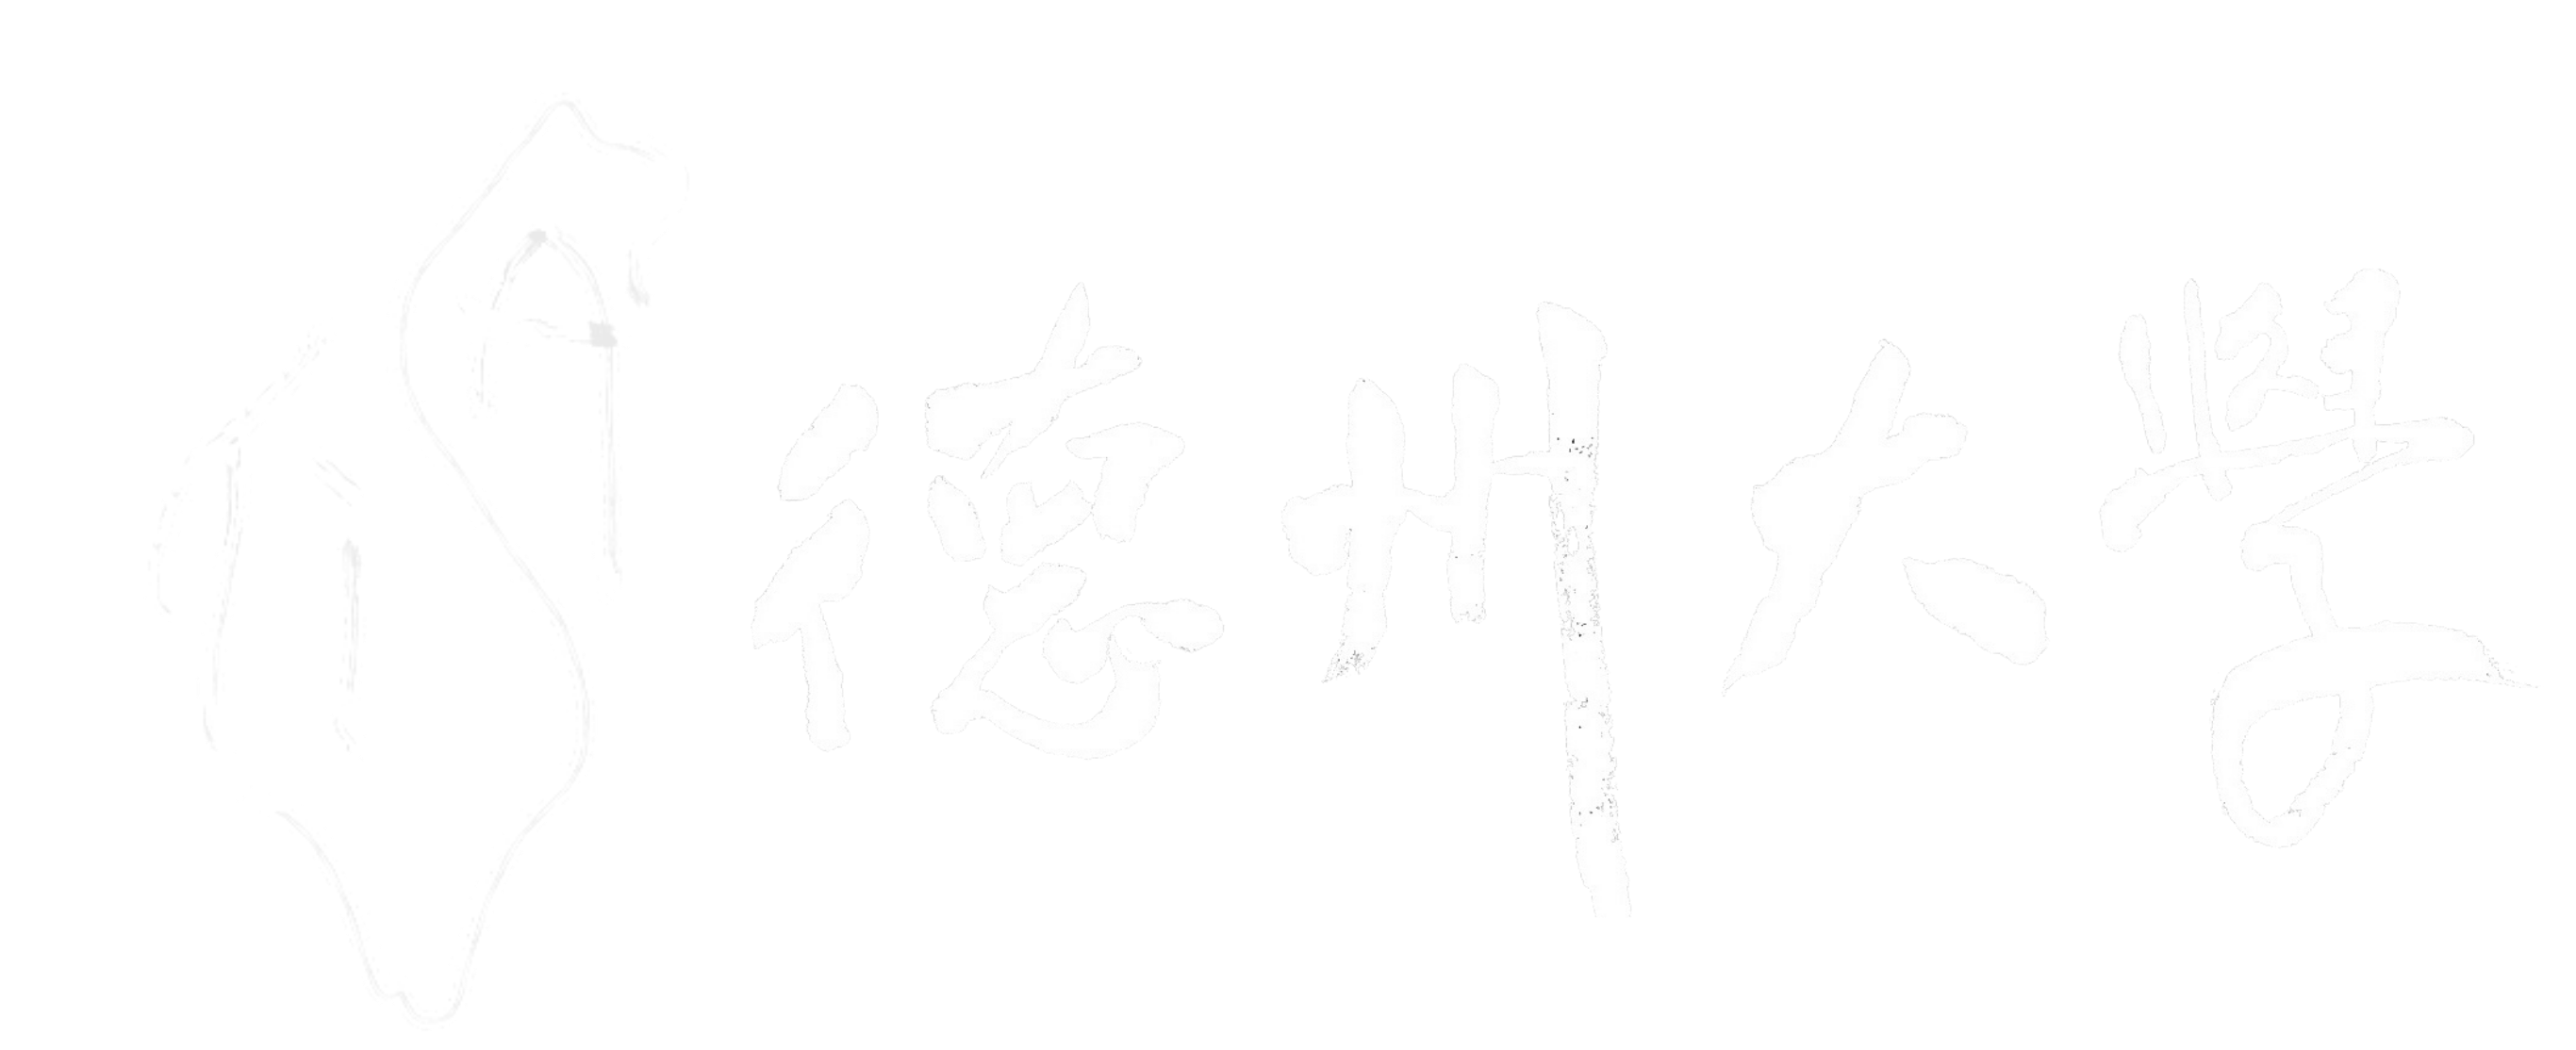 德州大學